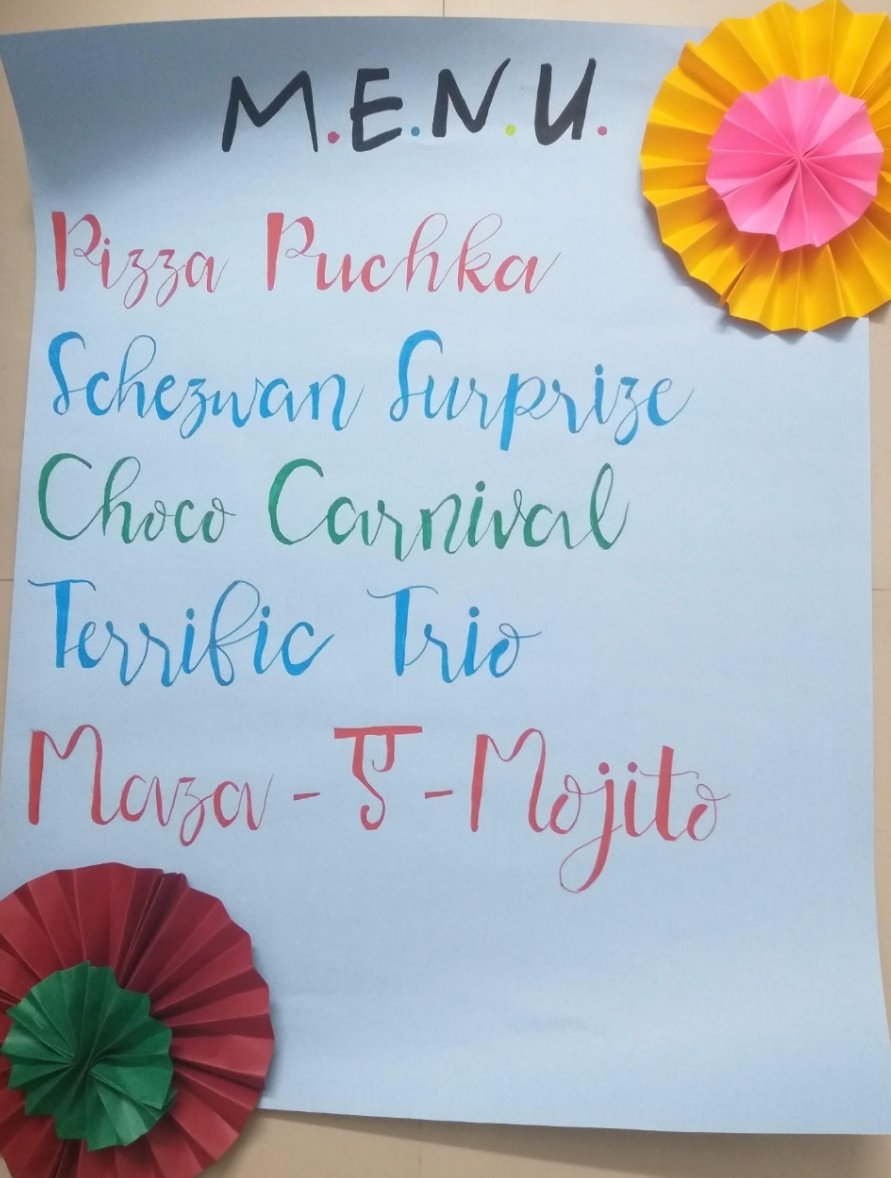 M.E.N.U.
Pizza Puchka
Schezwan Surprize
Choco Carnival
Terrific Trio
Maza - ए - Mojito